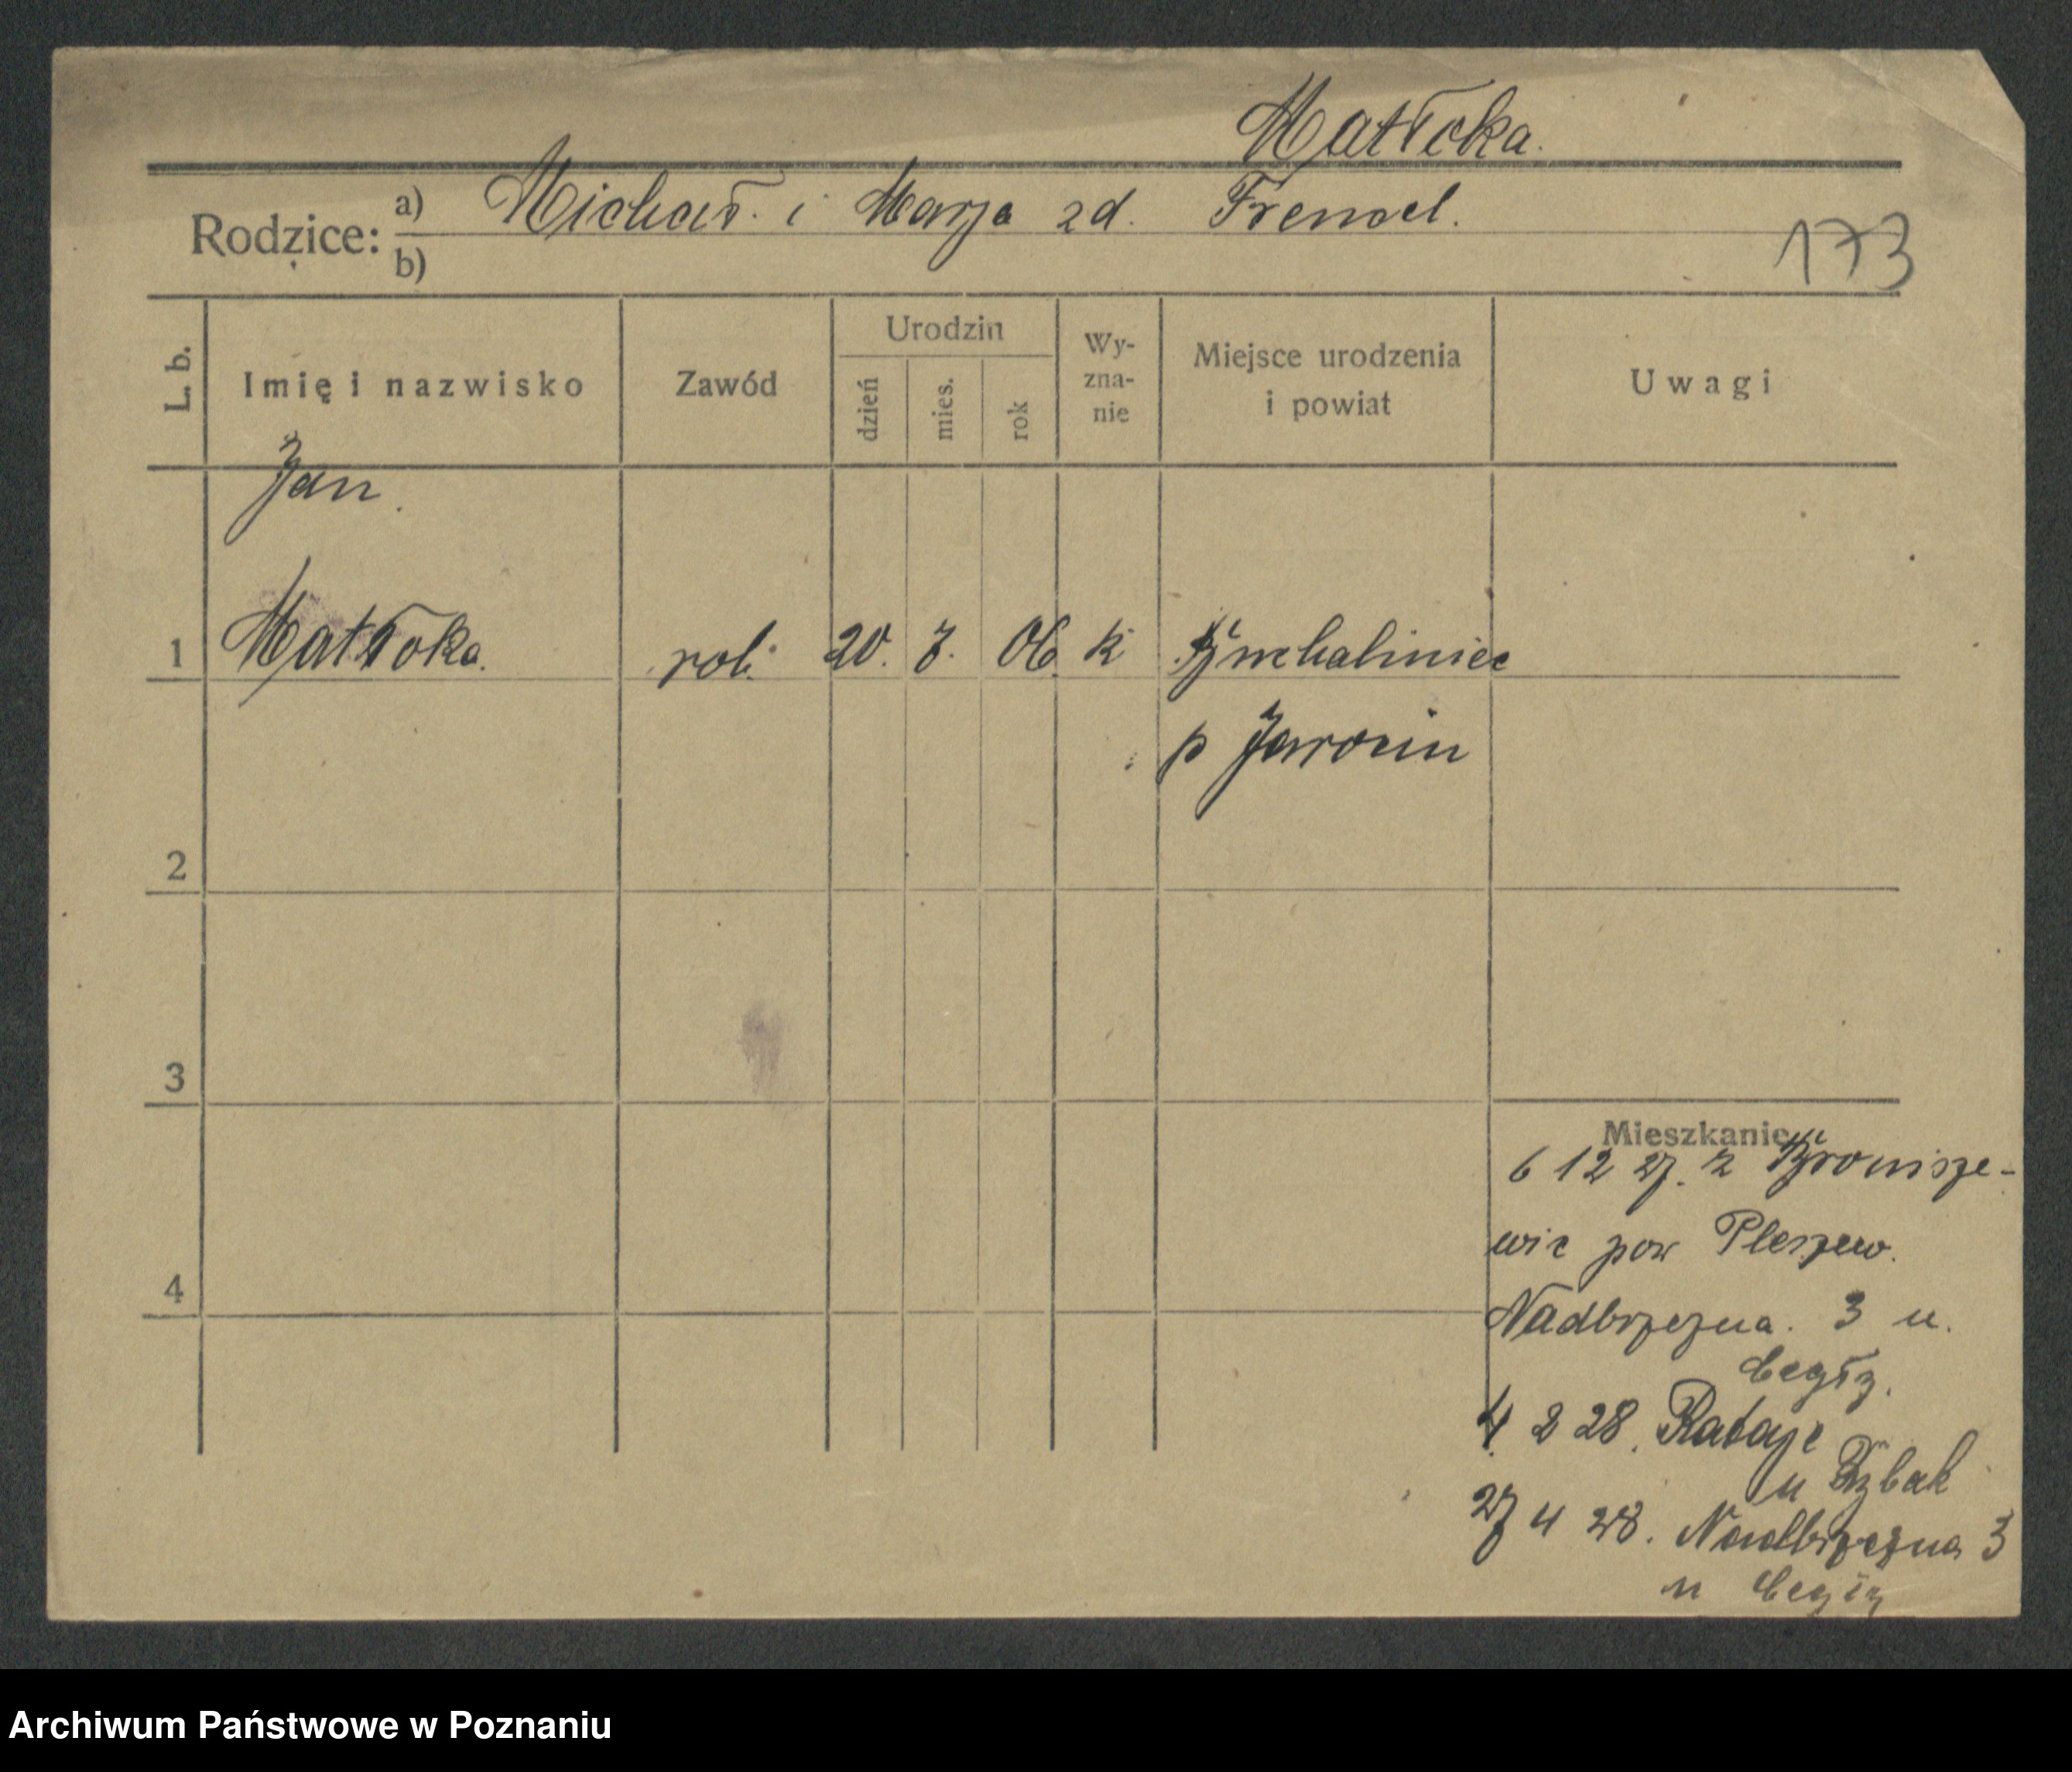 Matłoka.
Rodzice: a) Michał i Marja zd. Frencel.
b)
173
L. b. Imię i nazwisko Zawód Urodzin dzień mies. rok Wy-zna-nie Miejsce urodzenia i powiat Uwagi
Jan
1 Matłoka. rob. 20. 7. 06. k
p Jarocin
2
3
Mieszkanie
6 12 27. z Bronisze-
wic pow Pleszew.
4
Nadbrzezna. 3 u.
4 2 28. Rataje
u
27 4 28. Nadbrzezna 3
u
Archiwum Państwowe w Poznaniu